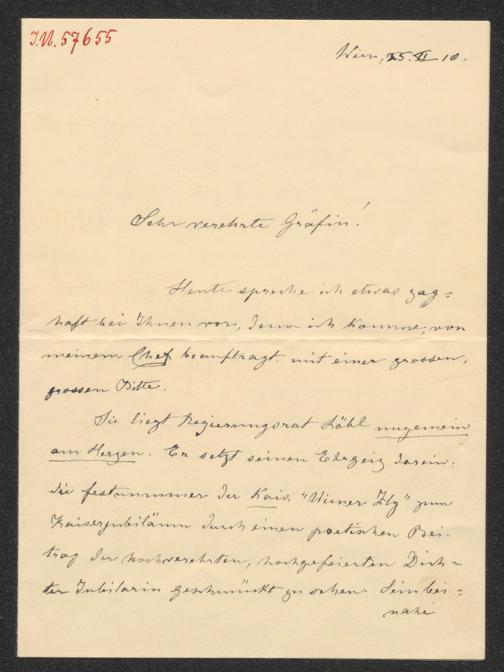 I.N. 57655
Wien, 25. II 10.
Sehr verehrte Gräfin!
Heute spreche ich etwas zag=
haft bei Ihnen vor, denn ich komme, von
meinem Chef beauftragt mit einer grossen,
grossen Bitte.
Sie liegt Regierungsrat Löbl ungemein
am Herzen. Er setzt seinen Ehrgeiz darein:
die Festnummer der Kais. "Wiener Ztg" zum
Kaiserjubiläum durch einen poetischen Bei-
trag der hochverehrten, hochgefeierten Dich=
ter Jubilarin geschmückt zu sehen.